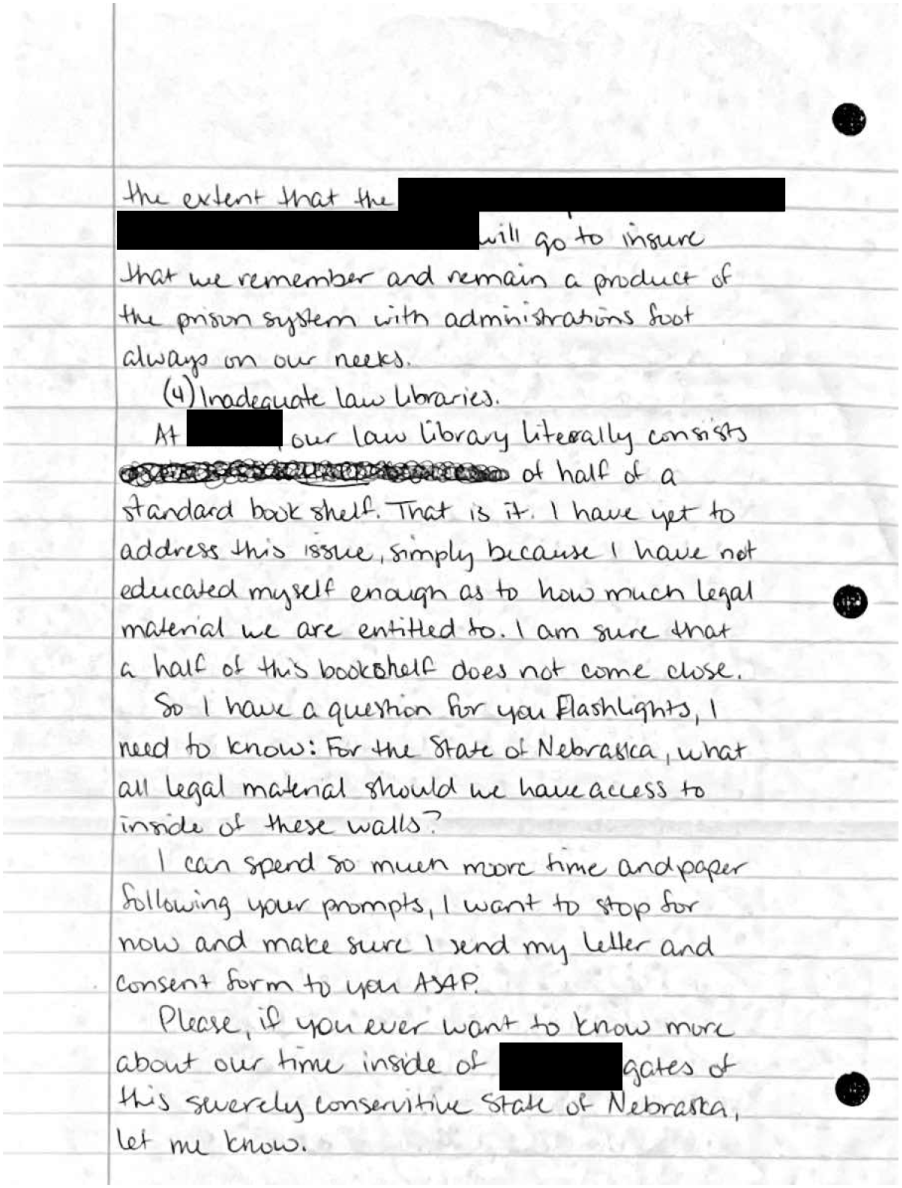 the extent that the
will go to insure
that we remember and remain a product of
the prison system with administrations foot
always on our necks.
(4) Inadequate law libraries.
At , our law library literally consists
of half of a
standard book shelf. That is it. I have yet to
address this issue, simply because I have not
educated myself enough as to how much legal
material we are entitled to. I am sure that
a half of this bookshelf does not come close.
So I have a question for you Flashlights, I
need to know: For the State of Nebraska, what
all legal material should we have access to
inside of these walls?
I can spend so much more time and paper
following your prompts, I want to stop for
now and make sure I send my letter and
consent form to you ASAP.
Please, if you ever want to know more
about our time inside of gates of
this severely conservitive State of Nebraska,
let me know.